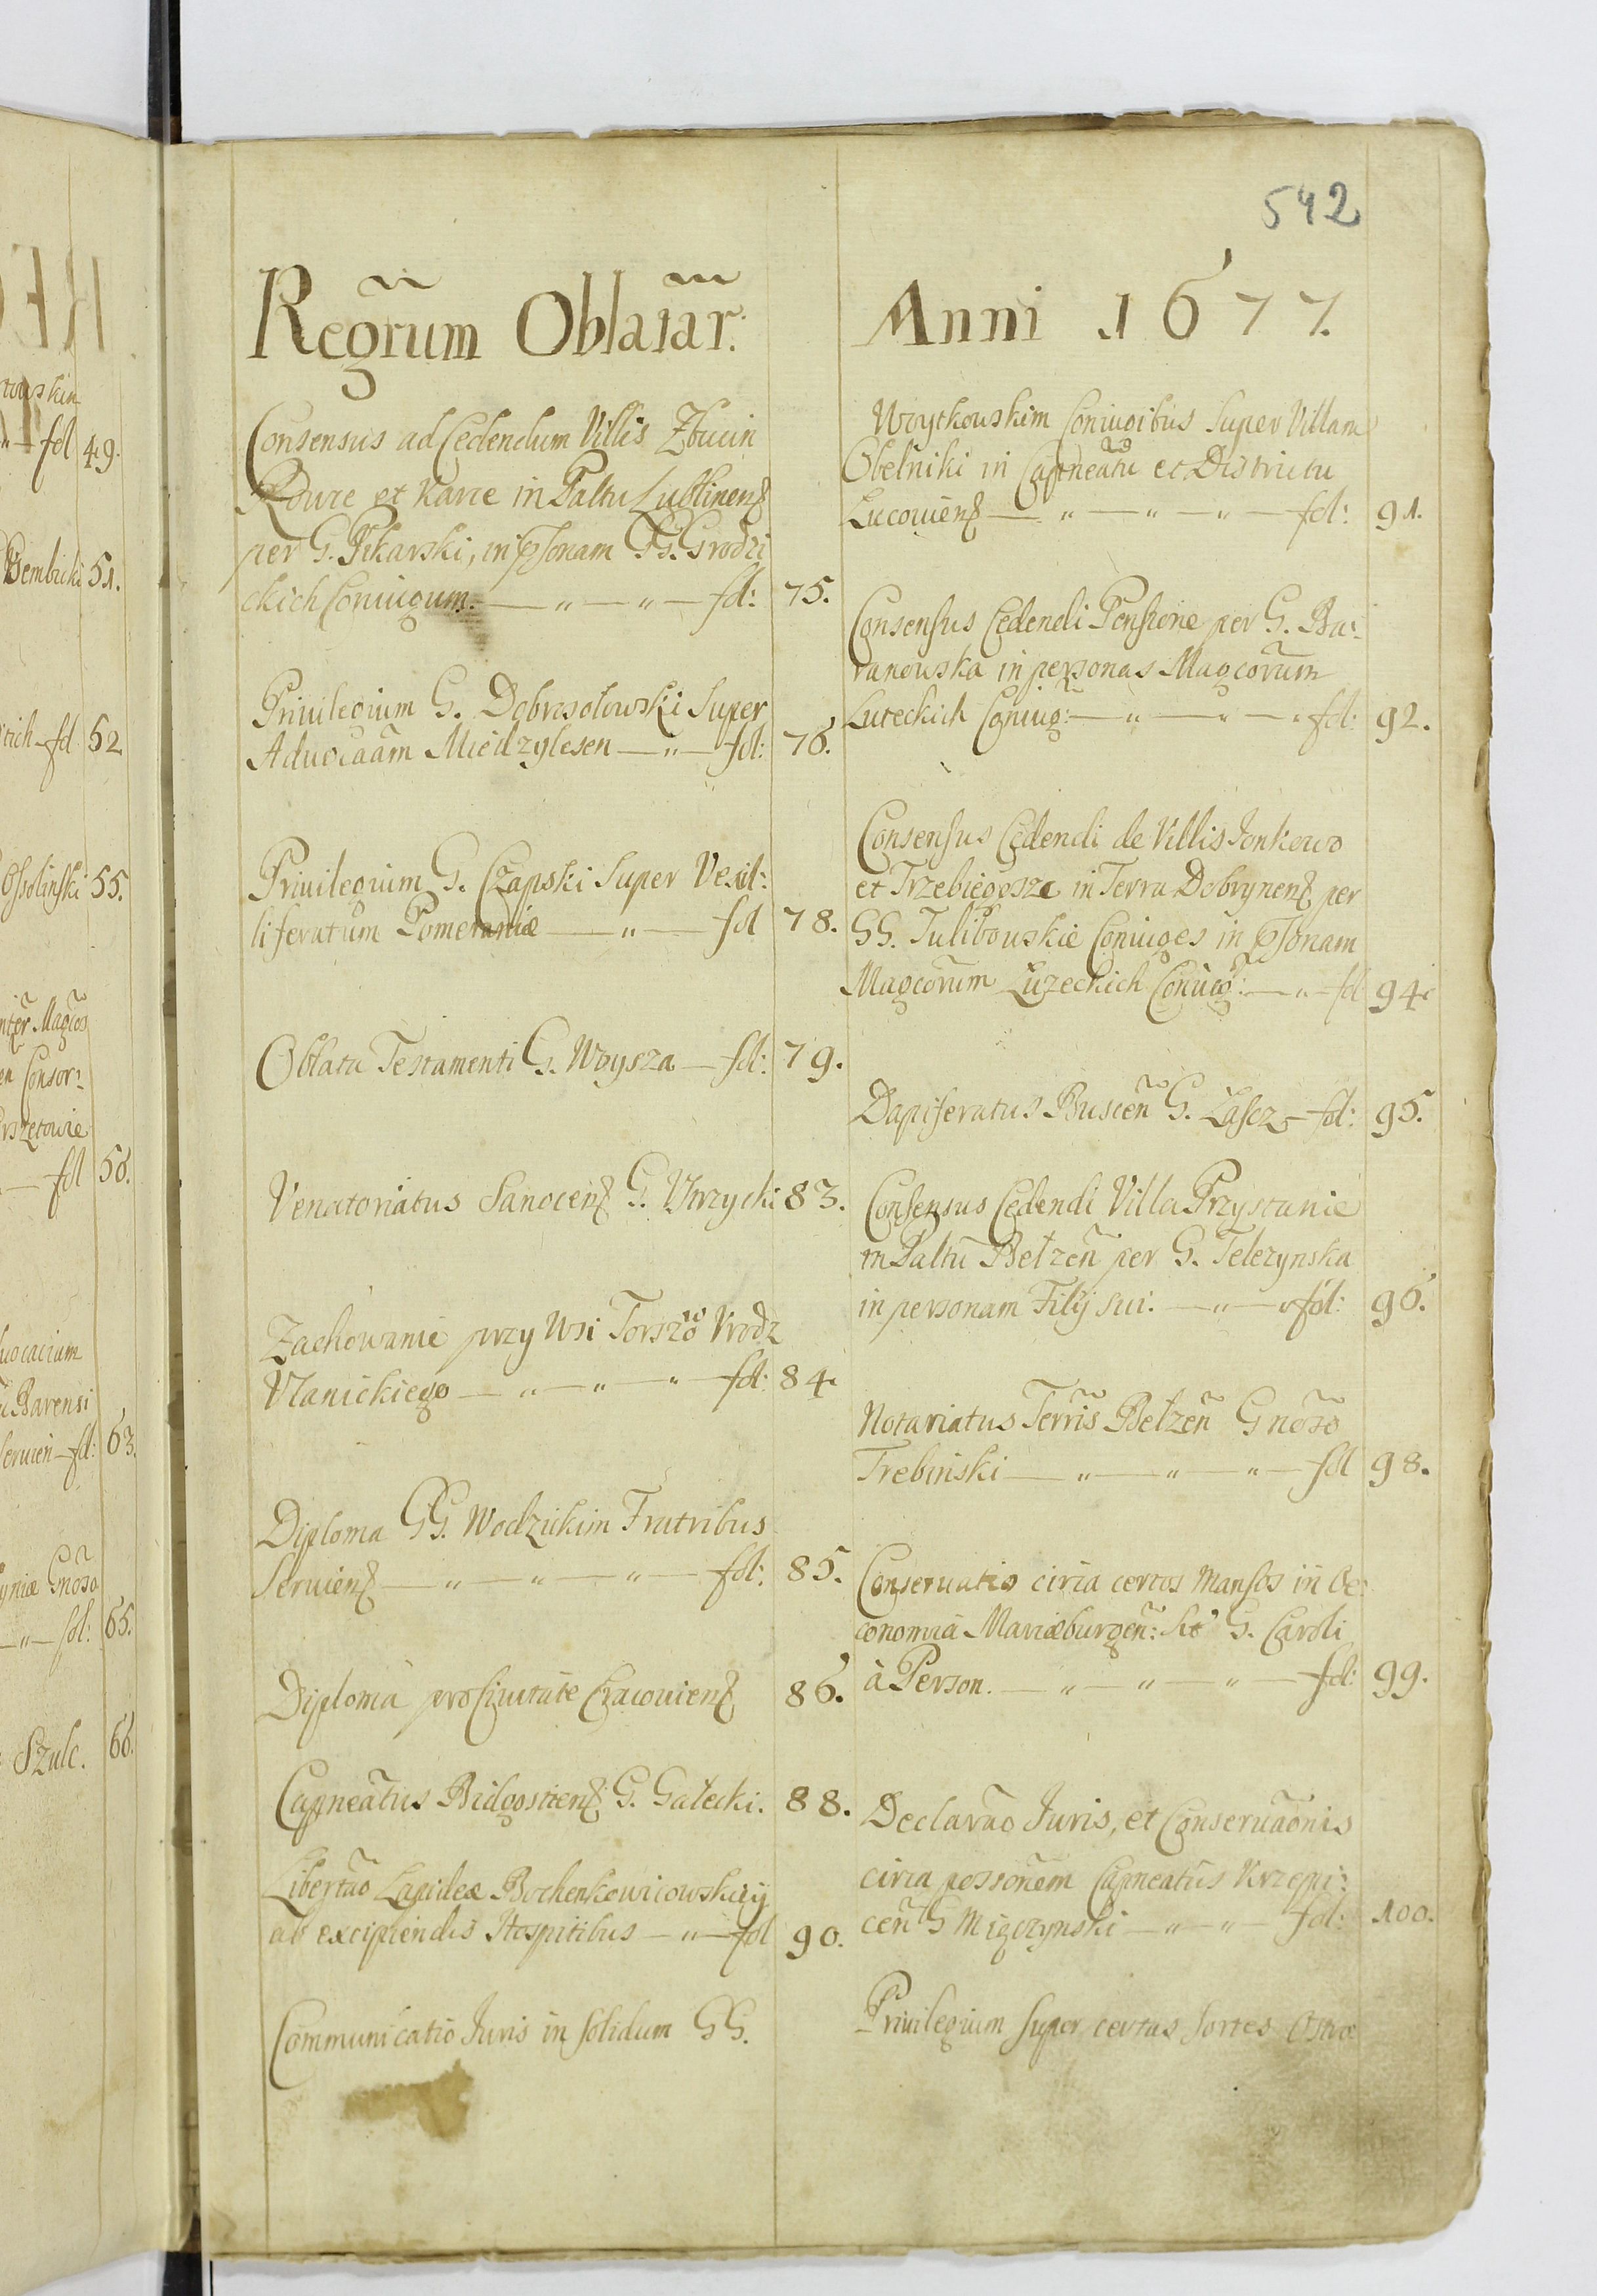 542
Regrum Oblatar:
Anni 1677.
Consensus ad Cedendum Villis Zbuin
et Karcze in Paltu Lublinens
per G. Pikarski, in psonam GG. Grodzi
ckich Coniugum. — " — " — fol: 75.
Priuilegium G. Dobrosołowski Super
Aduocaam Miedzylesen — " — fol: 76.
Priuilegium G. Czapski Super Vexil:
liferatum Pomeraniæ — " — fol 78.
Oblata Testamenti G. Woysza — fol: 79.
Venatoriatus Sanocens G. Vrzycki 83.
Zachowanie przy Wsi Vrodz
Vlanickiego — " — " — " — fol: 84
Diploma GG. Wodzickim Fratribus
Seruiens — " — " — " — fol: 85.
Diploma pro Ciuitate Cracouiens 86.
Capneatus Bidgostiens G. Gałecki. 88.
Libertao Lapideæ
ab excipiendis Hospitibus — " — fol 90.
Communicatio Iuris in solidum GG.
Woytkowskim Coniugibus Super Villam
Obelniki in Capneatu et Districtu
Lucouiens — " — " — " — fol: 91.
Consensus Cedendi Pensione per G. Ba:
ranowska in personas Magcorum
Luteckich Coniug: — " — " — " fol: 92.
Consensus Cedendi de Villis Jonkowo
et Trzebiegosze in Terra Dobrynens per
GG. Tulibowskie Coniuges in psonam
Magcorum Luzeckich Coniug: — " — fol 94
Dapiferatus Buscen G. Łascz — fol: 95.
Consensus Cedendi Villa Przystanie
in Paltu Bełzen per G. Telezynska
in personam Filij sui. — " — " fol: 96.
Notariatus Terris Bełzen Gnoso
Trebinski — " — " — " — fol 98.
Conseruatio circa certos Mansos in Oe:
conomia Mariæburgen: G. Caroli
à Person. — " — " — " — fol: 99.
Declarao Iuris, et Conseruaonis
circa possonem Capneatus Krzepi:
cen G Miączynski — " — " — fol: 100.
Priuilegium super certas sortes Ostro